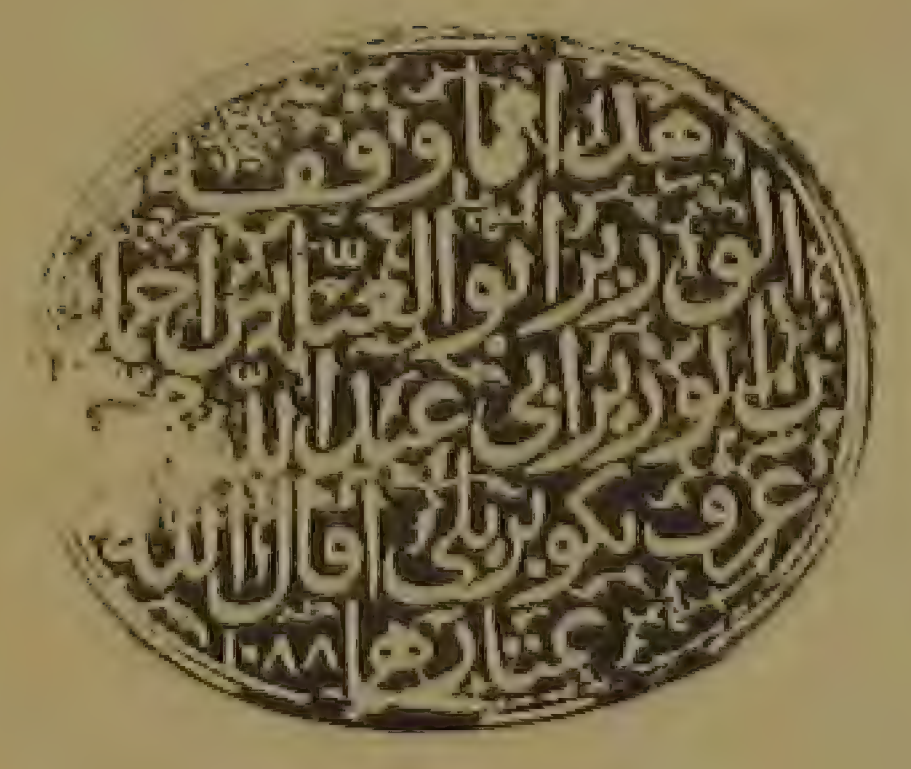 هذا مما وقفه
الوزير ابو العباس احمد
بن الوزير ابي عبد الله
عرف بكوبريلى اقال الله
عثارهما ١٠٨٨